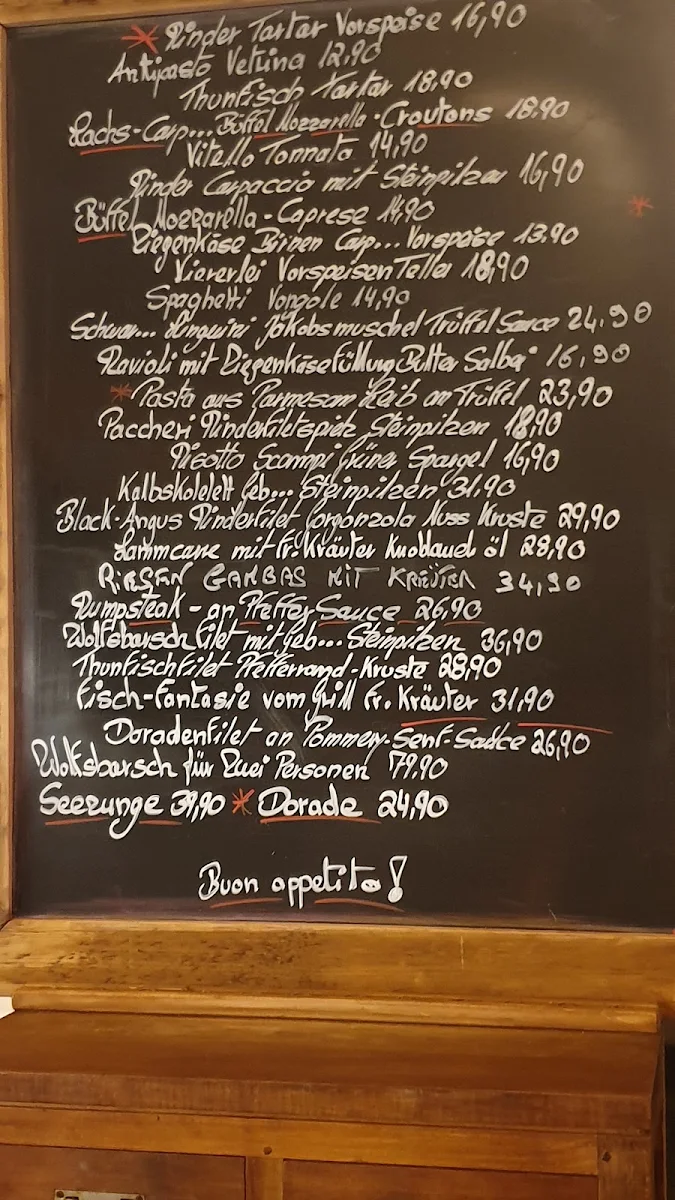 Rinder Tartar Vorspeise 16,90
Antipasto Vetrina 12,90
Thunfisch Tartar 18,90
Lachs-Carp... Büffel Mozzarella-Croutons 18.90
Vitello Tonnato 14,90
Rinder Carpaccio mit Steinpilzen 16,90
Büffel Mozzarella-Caprese 14,90
Ziegenkäse Birnen Carp... Vorspeise 13.90
Viererlei Vorspeisen Teller 18,90
Spaghetti Vongole 14,90
Schwar... Linguini Jakobsmuschel Trüffel Sauce 24,90
Ravioli mit Ziegenkäsefüllung Butter Salbei 16,90
Pasta aus Parmesan Leib an Trüffel 23,90
Paccheri Rinderfiletspitz Steinpilzen 18,90
Risotto Scampi Grüner Spargel 16,90
Kalbskotelett Geb... Steinpilzen 31,90
Black-Angus Rinderfilet Gorgonzola Nuss Kruste 29,90
Lammcarre mit Fr. Kräuter Knoblauch öl 28,90
RIESEN GAMBAS MIT KRÄUTER 34,90
Rumpsteak - an Pfeffer Sauce 26,90
Wolfsbarsch Filet mit geb... Steinpilzen 36,90
ThunfischFilet Pfefferrand-Kruste 28,90
Fisch-Fantasie vom Grill Fr. Kräuter 31,90
DoradenFilet an Pommery-Senf-Sauce 26,90
Wolfsbarsch für Zwei Personen 79.90
Seezunge 39,90 * Dorade 24,90
Buon appetito!